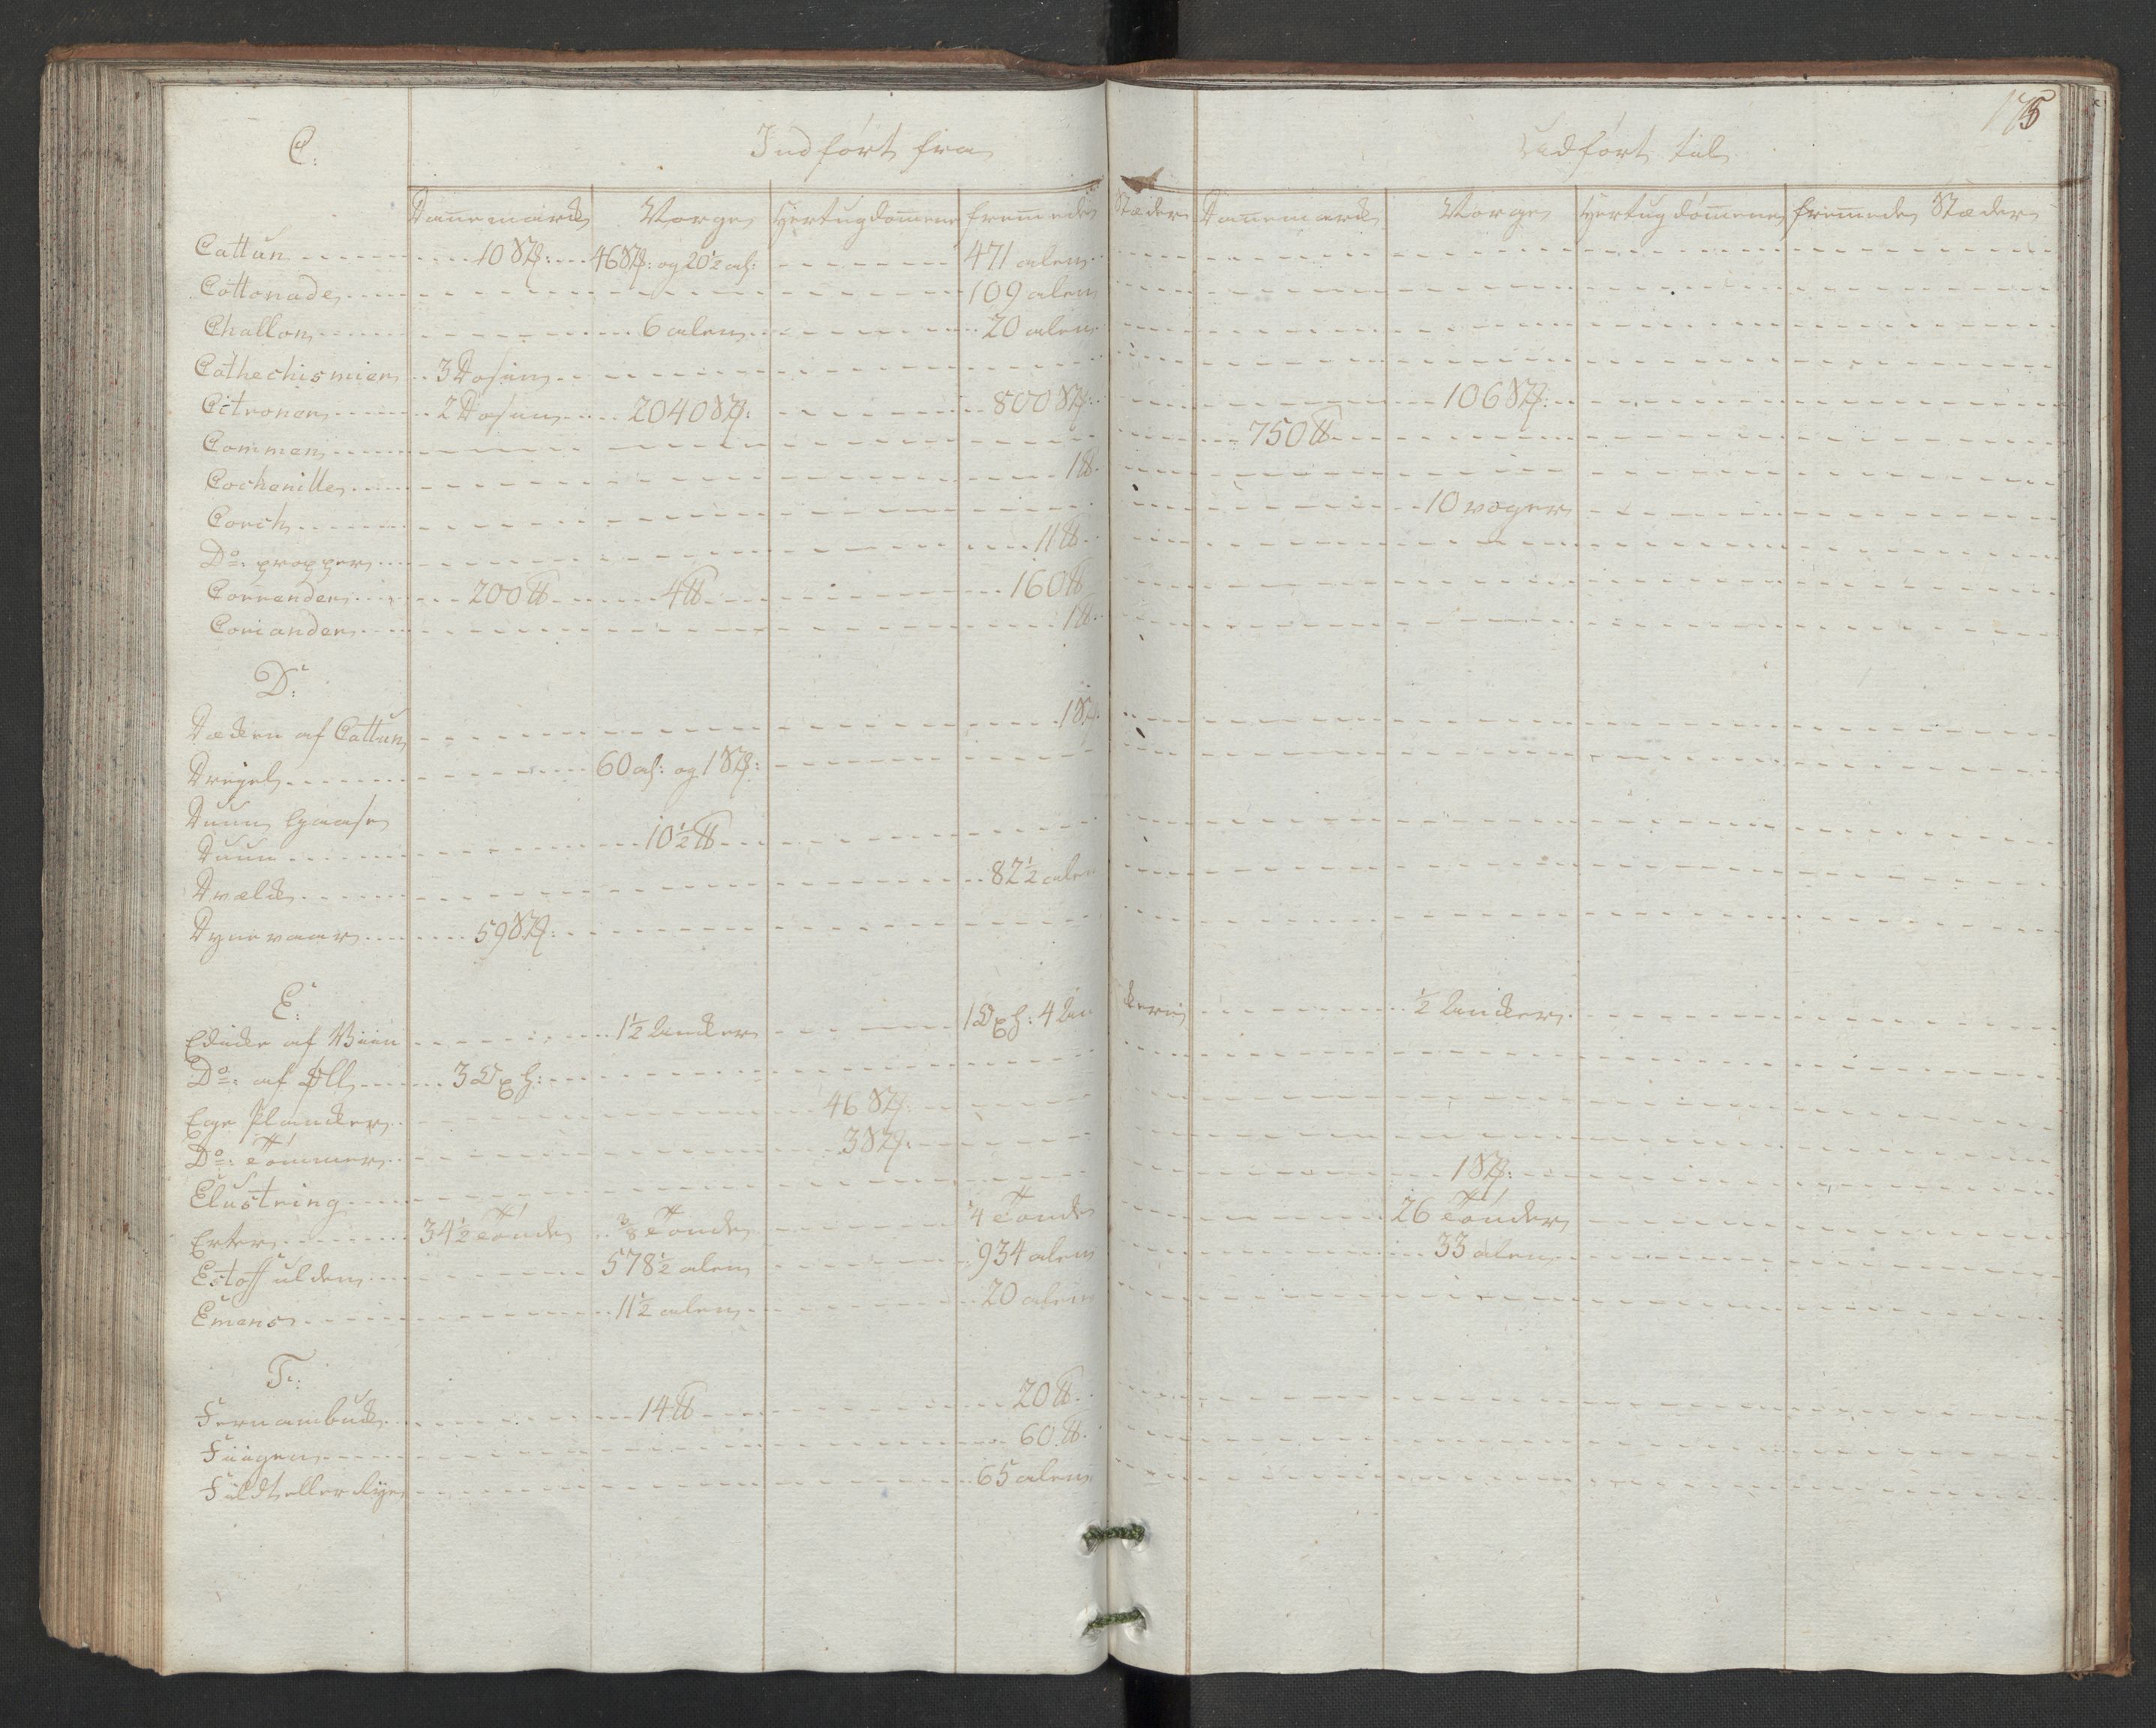 175
C: Indført fra Udført til
Danemarck Norge Hertugdomene fremede Stæder Danemarck Norge Hertugdømene fremede Stæder
Cattun 10 St: 46 St: og 20 1/2 al: 471 alen
Cottonade 109 alen
Challon 6 alen 20 alen
Cathechismier 3 Dosin
Citroner 2 Dosin 2040 St: 800 St: 106 St:
Commen 750 ℔
Cochenille 1 ℔
Corck 10 voger
Do: propper 11 ℔
Correnderi 200 ℔ 4 ℔ 160 ℔
Coriander 1 ℔
D:
Dæcken af Cattun 1 St:
Dreyel 60 al: og 1 St:
Duun Gaase
Duun 10 1/2 ℔
Dvælck 82 1/2 alen
Dynevaar 59 St:
E:
Edicke af Viin 1 1/2 Ancker 1 Oxh: 4 Anckerne 1/2 Ancker
Do: af Øll 3 Oxh:
Ege Plancker 46 St:
Do: Tømmer 3 St:
Elustring 1 St:
Erter 34 1/2 Tønde 3/8 Tonde 1/4 Tonde 26 Tønder
Estoff ulden 578 1/2 alen 934 alen 33 alen
Emens 11 1/2 alen 20 alen
F:
Fernambuck 14 ℔ 20 ℔
Fiigen 60 ℔
Fildt eller Rye 65 alen